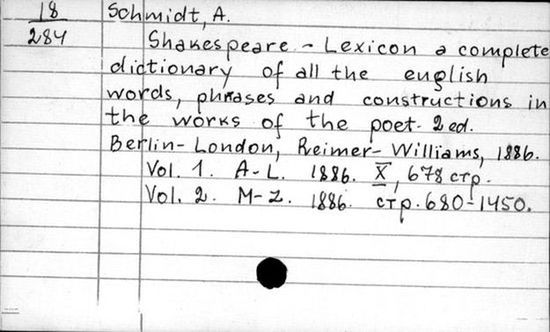 18
284
Schmidt, A.
Shakespeare - Lexicon a complete
dictionary of all the english
words, phrases and constructions in
the works of the poet. 2 ed.
Berlin-London, Reimer-Williams, 1886.
Vol. 1. A-L. 1886. X, 678 стр.
Vol. 2. M-Z. 1886. стр. 680-1450.